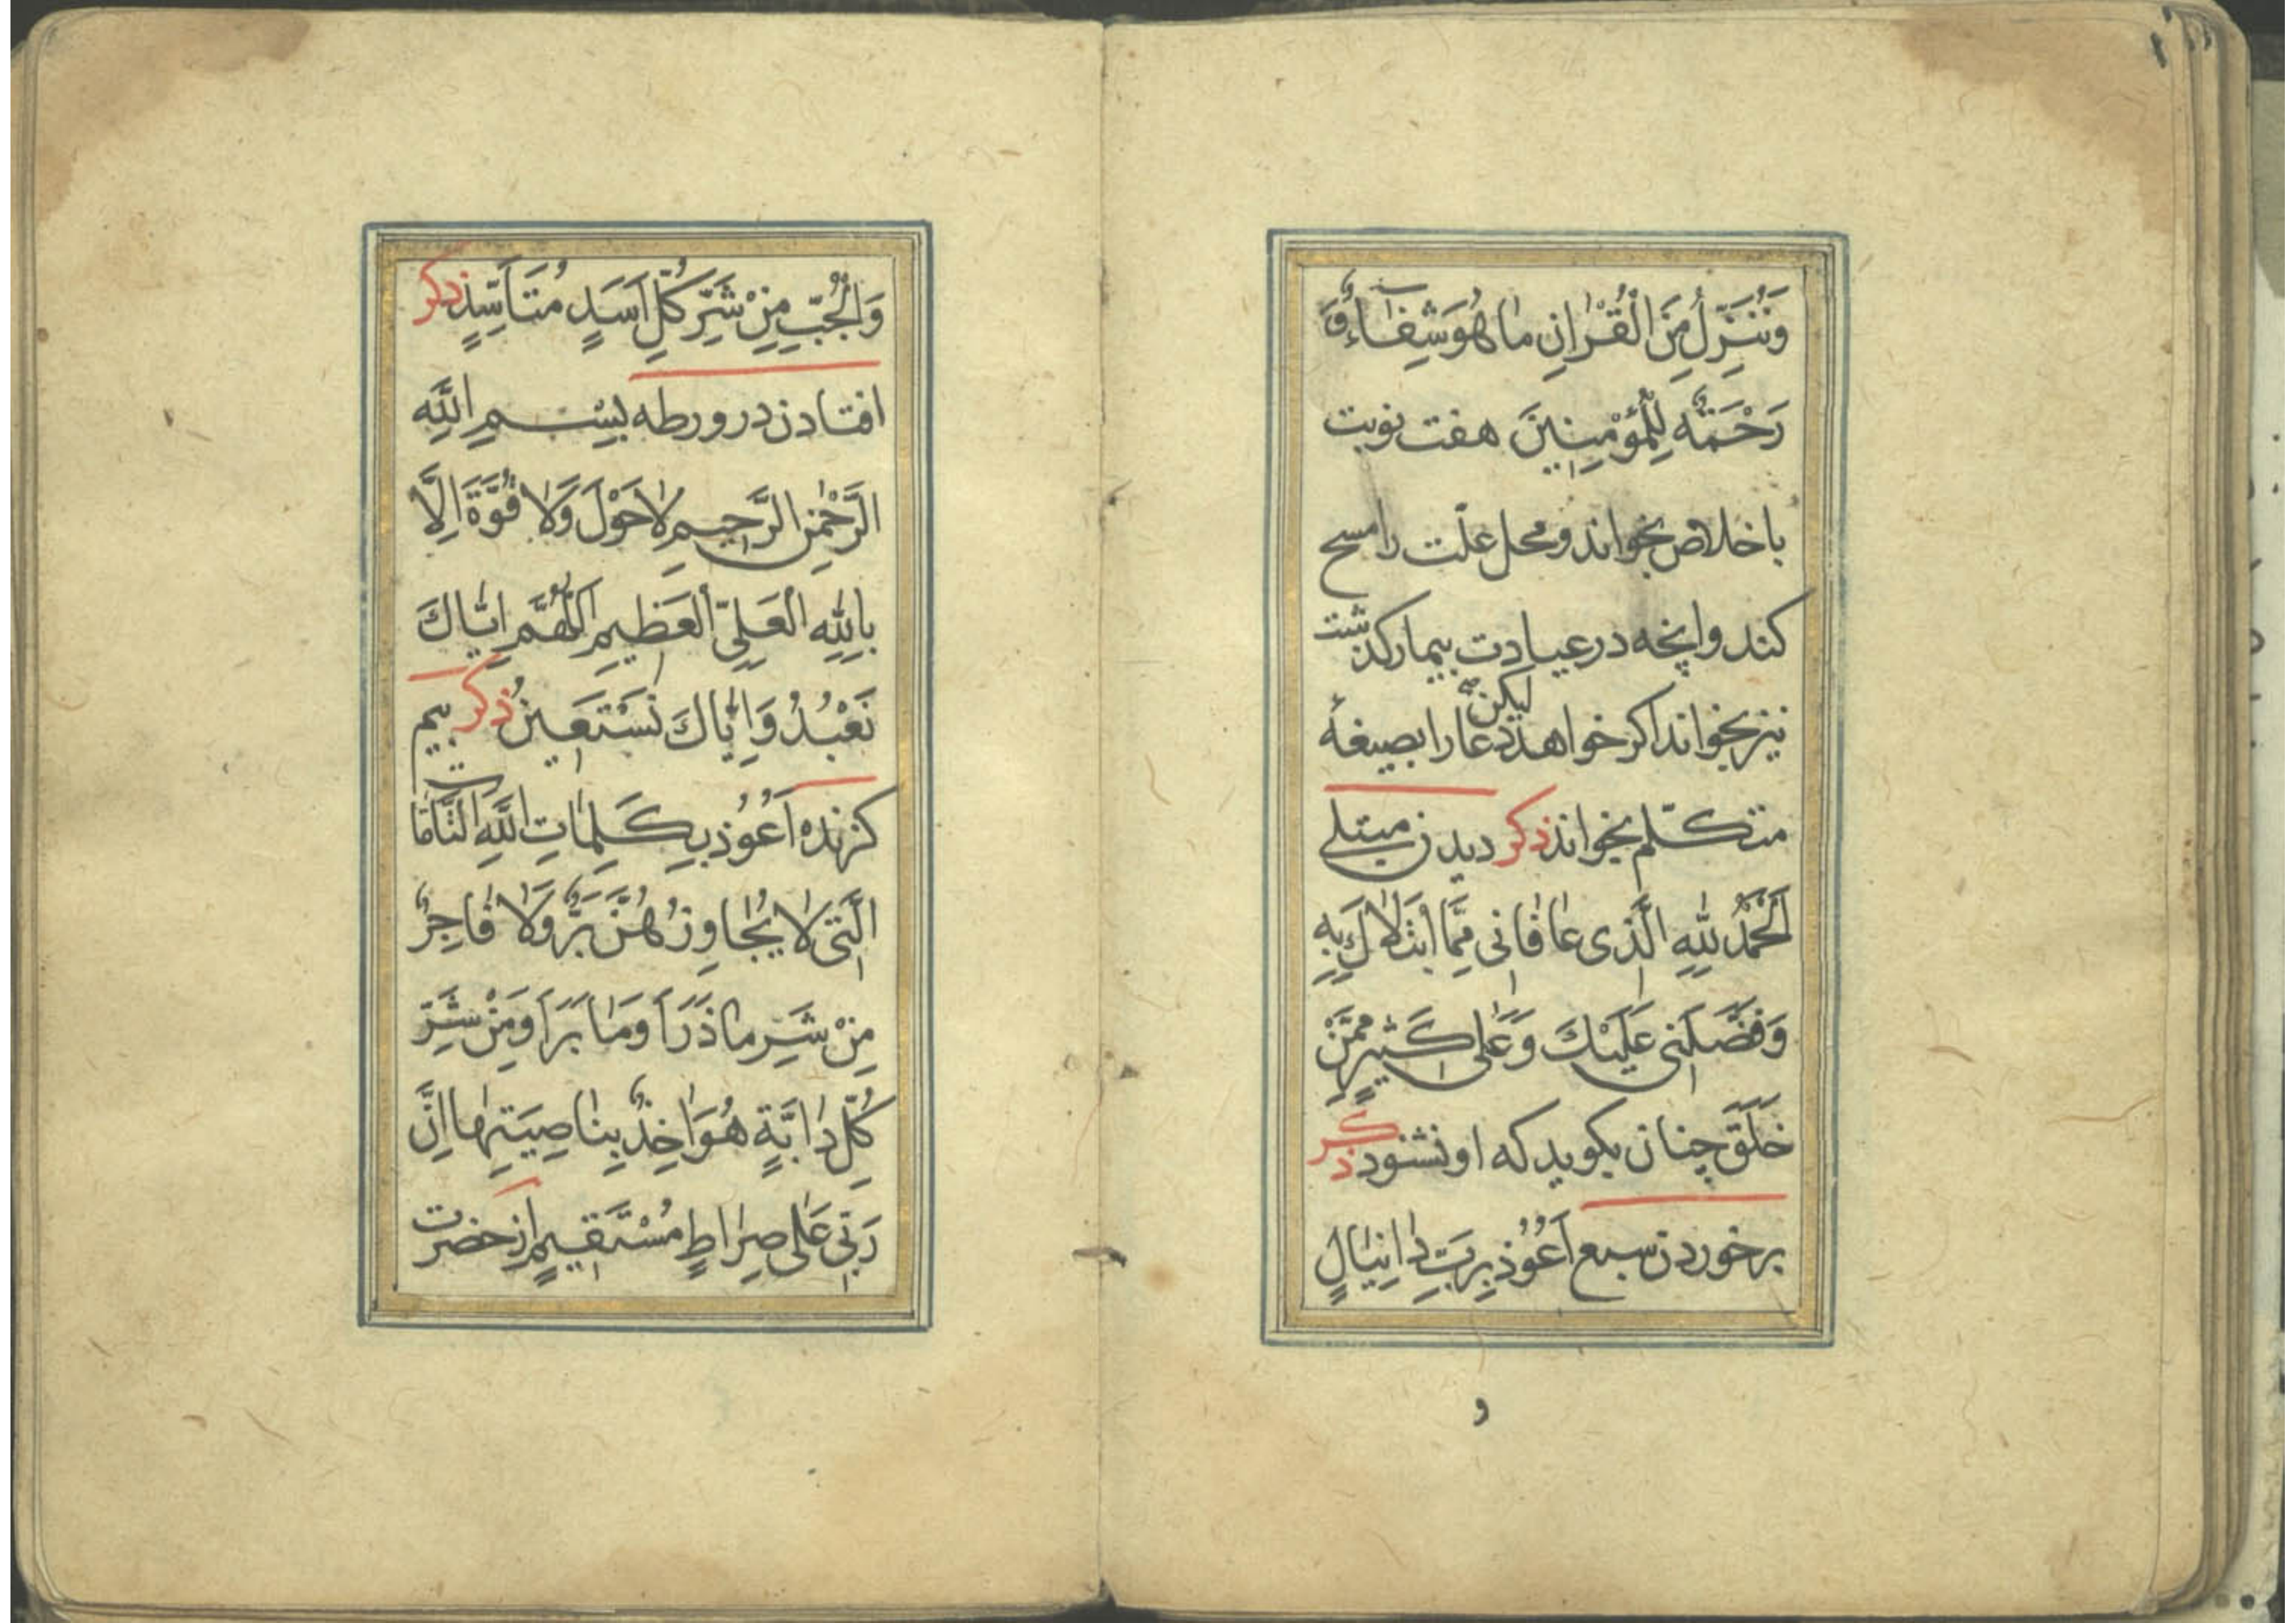 وَنُنَزِّلُ مِنَ الْقُرْاٰنِ مَا هُوَ شِفَاءٌ وَ
رَحْمَةٌ لِلْمُؤْمِنِينَ هفت نوبت
با خلاص بخواند و محل علّت را مسح
کند و انچه در عیادت بیمار کذشت
نیز بخواند اکر خواهد لیکن دعا را بصیغهٔ
متکلّم بخواند ذکر دیدن مبتلی
اَلْحَمْدُ لِلّٰهِ الَّذِی عَافَانِی مِمَّا ابْتَلَاكَ بِهِ
وَفَضَّلَنِی عَلَیْكَ وَعَلٰی كَثِیرٍ مِمَّنْ
خَلَقَ چنان بکوید که او نشنود ذکر
برخوردن سبع اَعُوُذُ بِرَبِّ دَانِیَالٍ
و
وَالْجُبِّ مِنْ شَرِّ كُلِّ اَسَدٍ مُتَأَسِّدٍ ذکر
افتادن در ورطه بِسْمِ اللّٰهِ
الرَّحْمٰنِ الرَّحِیمِ لَا حَوْلَ وَلَا قُوَّةَ اِلَّا
بِاللّٰهِ الْعَلِیِّ الْعَظِیمِ اَللّٰهُمَّ اِیَّاكَ
نَعْبُدُ وَاِیَّاكَ نَسْتَعِینُ ذکر بیم
کزنده اَعُوُذُ بِكَلِمَاتِ اللّٰهِ التَّامَّاتِ
الَّتِی لَا یُجَاوِزُهُنَّ بَرٌّ وَلَا فَاجِرٌ
مِنْ شَرِّ مَا ذَرَاَ وَمَا بَرَاَ وَمِنْ شَرِّ
كُلِّ دَابَّةٍ هُوَ اٰخِذٌ بِنَاصِیَتِهَا اِنَّ
رَبِّی عَلٰی صِرَاطٍ مُسْتَقِیمٍ از حضرت